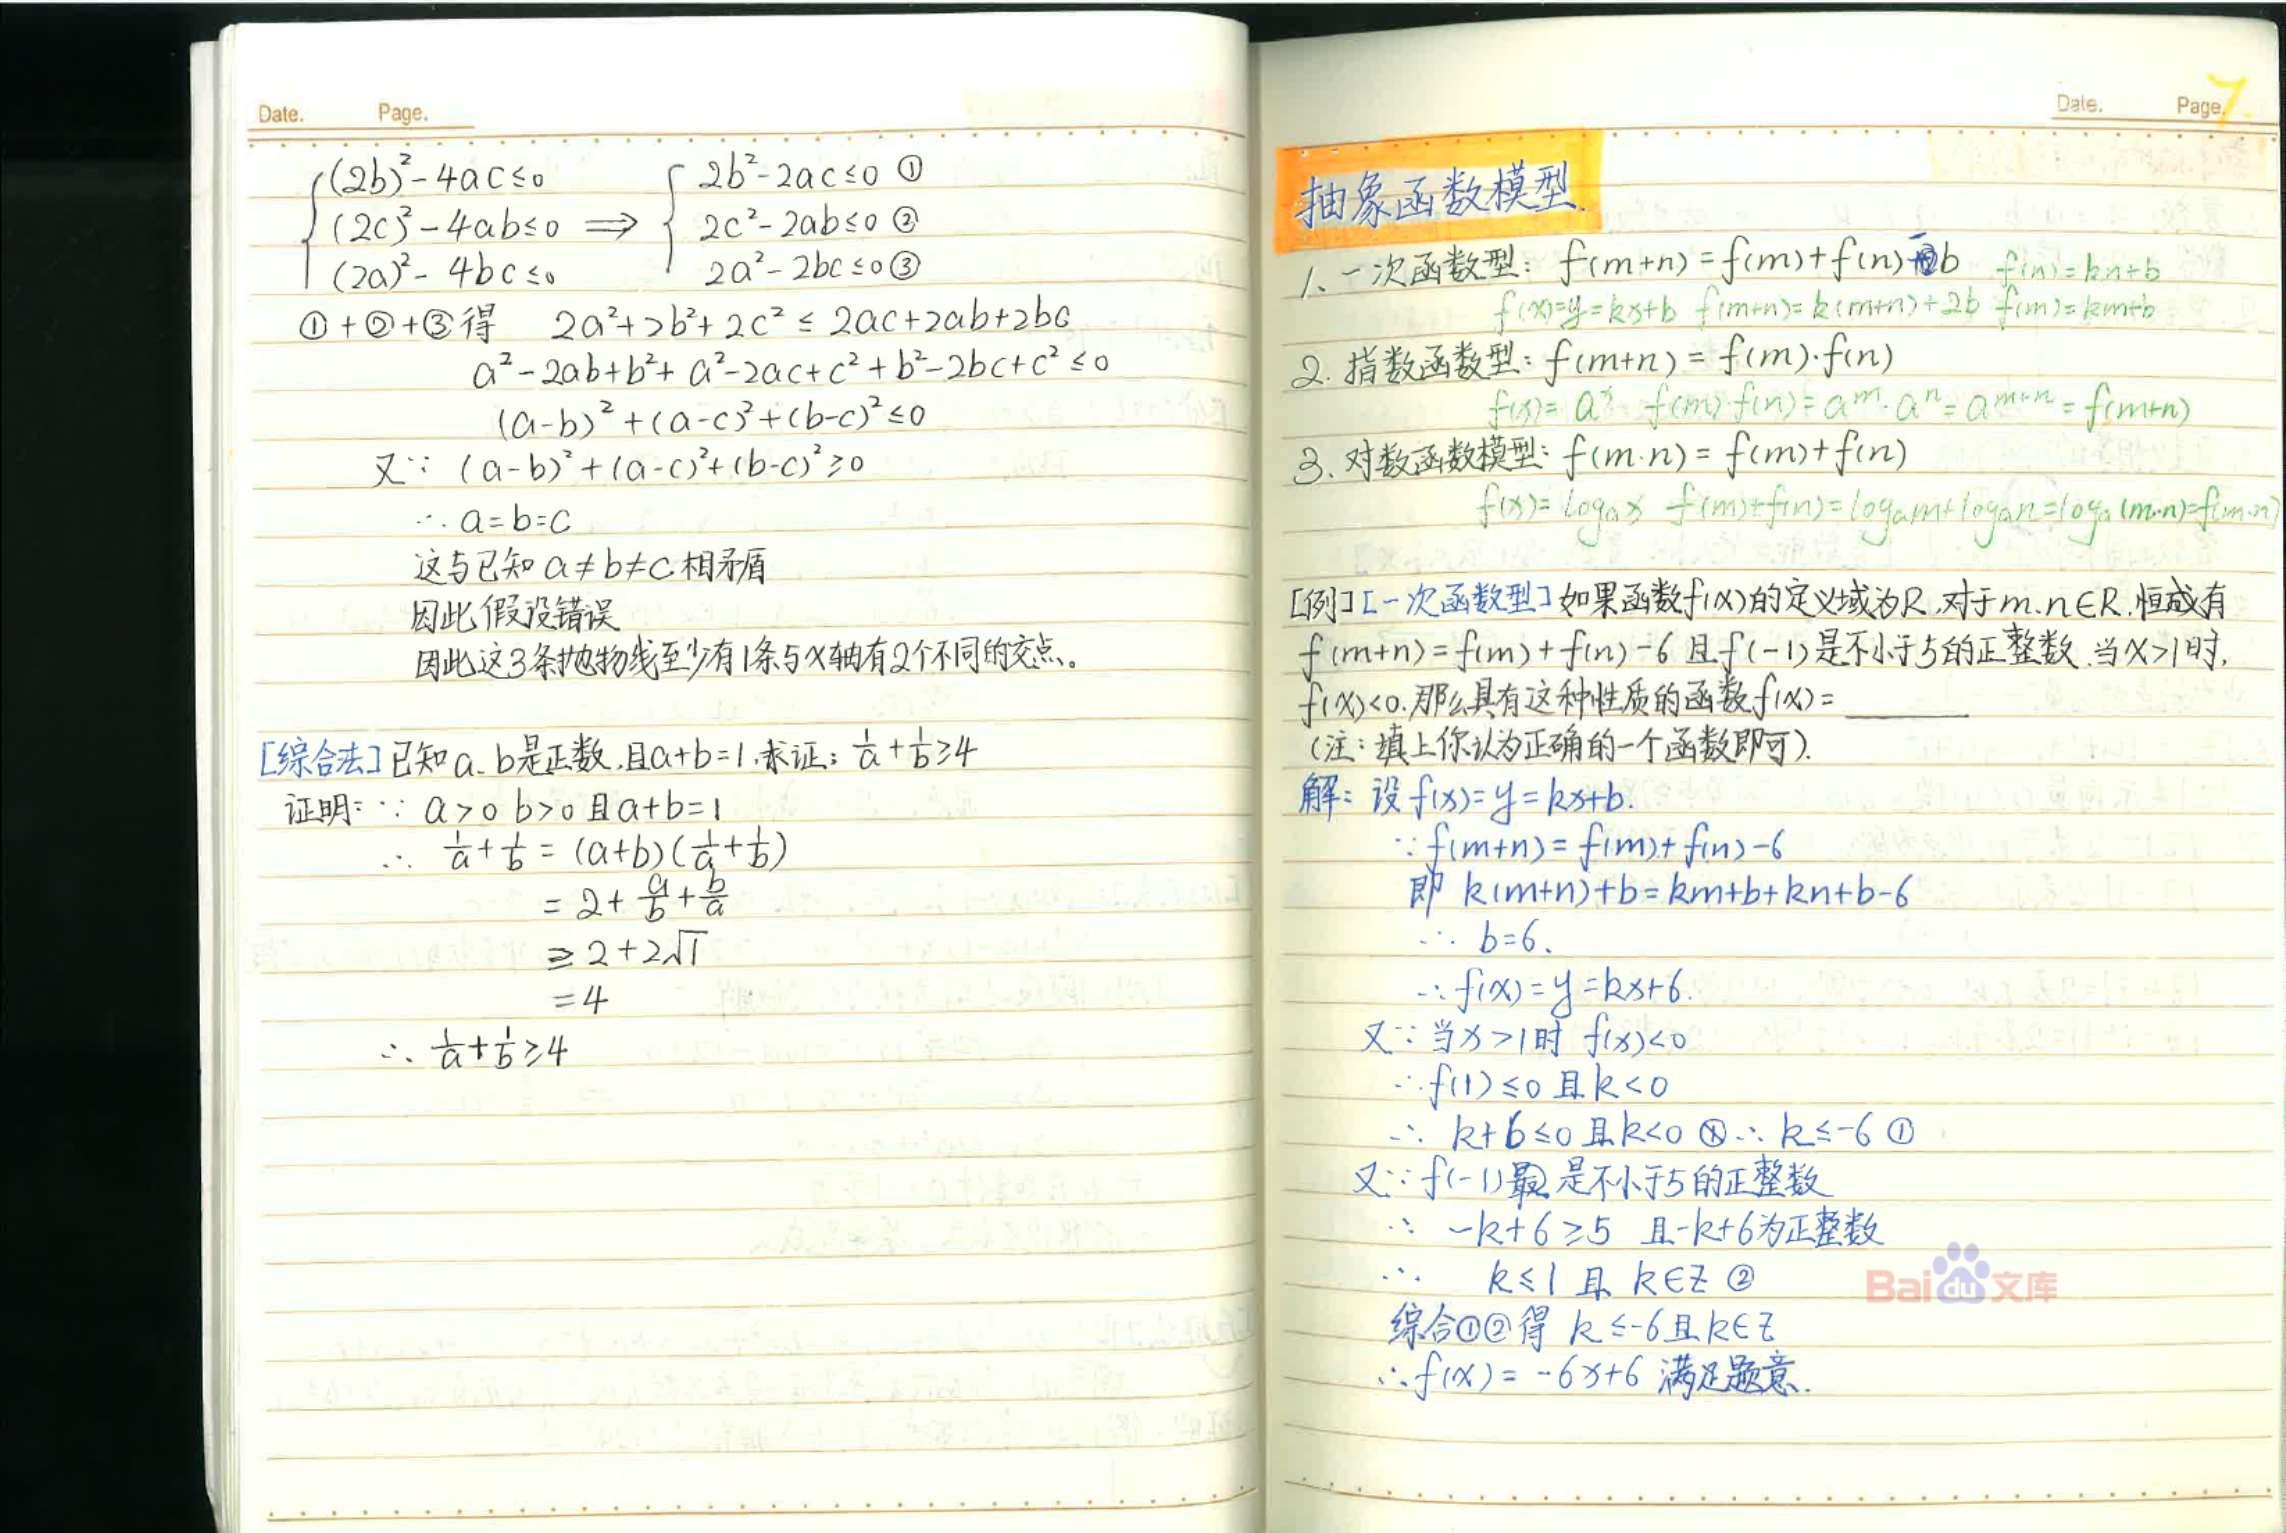 Date. Page.
(2b)²-4ac≤0
(2c)²-4ab≤0
(2a)²-4bc≤0
⇒
2b²-2ac≤0 ①
2c²-2ab≤0 ②
2a²-2bc≤0 ③
①+②+③得 2a²+2b²+2c²≤2ac+2ab+2bc
a²-2ab+b²+a²-2ac+c²+b²-2bc+c²≤0
(a-b)²+(a-c)²+(b-c)²≤0
又∵ (a-b)²+(a-c)²+(b-c)²≥0
∴ a=b=c
这与已知a≠b≠c相矛盾
因此假设错误
因此这3条抛物线至少有1条与x轴有2个不同的交点。
[综合法]已知a、b是正数,且a+b=1,求证: 1/a+1/b≥4
证明:∵ a>0 b>0 且a+b=1
∴ 1/a+1/b=(a+b)(1/a+1/b)
=2+a/b+b/a
≥2+2√1
=4
∴ 1/a+1/b≥4
Date. Page. 7.
抽象函数模型.
1、一次函数型: f(m+n)=f(m)+f(n)-b f(n)=kn+b
f(x)=y=kx+b f(m+n)=k(m+n)+2b f(m)=km+b
2. 指数函数型: f(m+n)=f(m)·f(n)
f(x)=aˣ f(m)·f(n)=aᵐ·aⁿ=aᵐ⁺ⁿ=f(m+n)
3、对数函数模型: f(m·n)=f(m)+f(n)
f(x)=logₐx f(m)+f(n)=logₐm+logₐn=logₐ(m·n)=f(m·n)
[例][一次函数型]如果函数f(x)的定义域为R,对于m.n∈R,恒成有
f(m+n)=f(m)+f(n)-6 且f(-1)是不小于5的正整数,当x>1时,
f(x)<0.那么具有这种性质的函数f(x)=______
(注:填上你认为正确的一个函数即可).
解:设f(x)=y=kx+b.
∵f(m+n)=f(m)+f(n)-6
即 k(m+n)+b=km+b+kn+b-6
∴ b=6.
∴f(x)=y=kx+6.
又∵当x>1时 f(x)<0
∴f(1)≤0 且k<0
∴ k+6≤0 且k<0 ∴ k≤-6 ①
又∵f(-1)是不小于5的正整数
∴ -k+6≥5 且-k+6为正整数
∴ k≤1 且 k∈Z ②
综合①②得 k≤-6且k∈Z
∴f(x)=-6x+6 满足题意.
Baidu文库